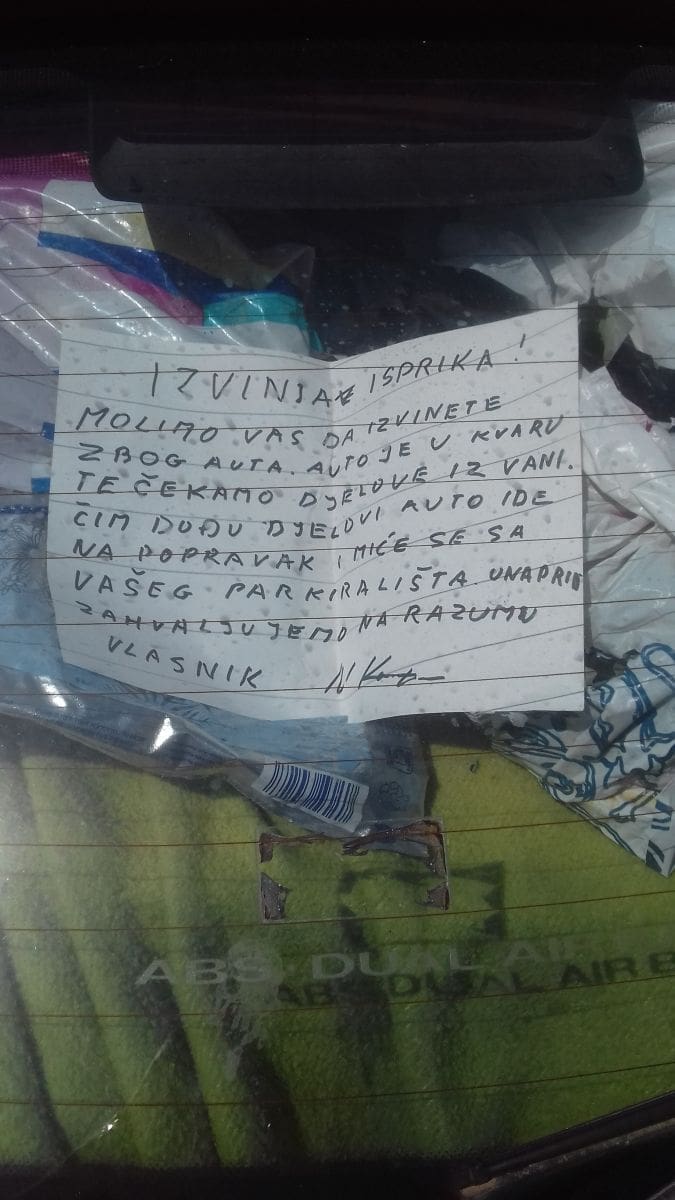 IZVINJAK ISPRIKA!
MOLIMO VAS DA IZVINETE
ZBOG AUTA. AUTO JE U KVARU
TE ČEKAMO DJELOVE IZ VANI.
ČIM DUĐU DJELOVI AUTO IDE
NA POPRAVAK I MIĆE SE SA
VAŠEG PARKIRALIŠTA UNAPRID
ZAHVALJUJEMO NA RAZUMU
VLASNIK
ABS. DUAL AIR
ABS DUAL AIR B